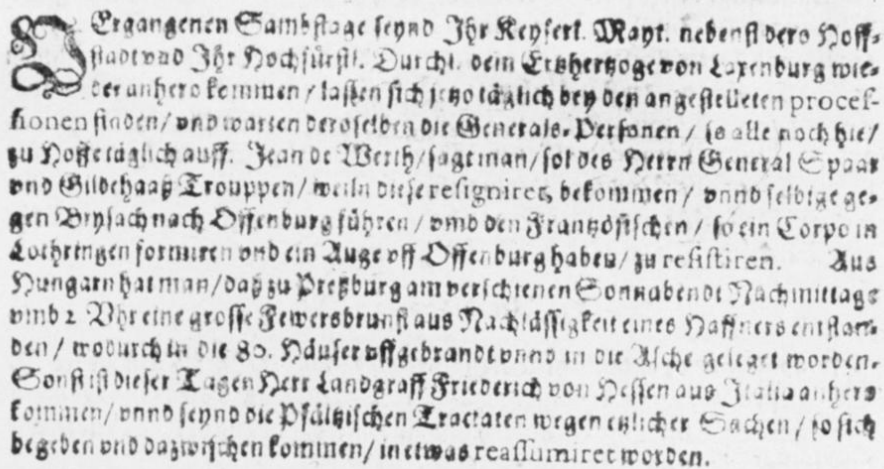 VErgangenen Sambstage seynd Ihr Keyserl. Mayt. nebenst dero Hoff-
stadt vnd Ihr Hochfürstl. Durchl. dem Ertzhertzoge von Laxenburg wie-
der anhero kommen / lassen sich jetzo täglich bey den angestelleten proces-
sionen finden / vnd warten deroselben die Generals-Personen / so alle noch hie /
zu Hoffe täglich auff. Jean de Werth / sagt man / sol des Herrn General Spaar
vnd Gildehaaß Trouppen / weiln diese resigniret, bekommen / vnnd selbige ge-
gen Brysach nach Offenburg führen / vmb den Frantzösischen / so ein Corpo in
Lothringen formiren vnd ein Auge vff Offenburg haben / zu resistiren. Aus
Hungarn hat man / daß zu Preßburg am verschienen Sonnabendt Nachmittags
vmb 2 Vhr eine grosse Fewersbrunst aus Nachlässigkeit eines Haffners entstan-
den / wodurch in die 80. Häuser vffgebrandt vnnd in die Asche geleget worden.
Sonst ist dieser Tagen Herr Landgraff Friederich von Hessen aus Italia anhero
kommen / vnnd seynd die Pfältzischen Tractaten wegen etzlicher Sachen / so sich
begeben vnd dazwischen kommen / in etwas reassumiret worden.